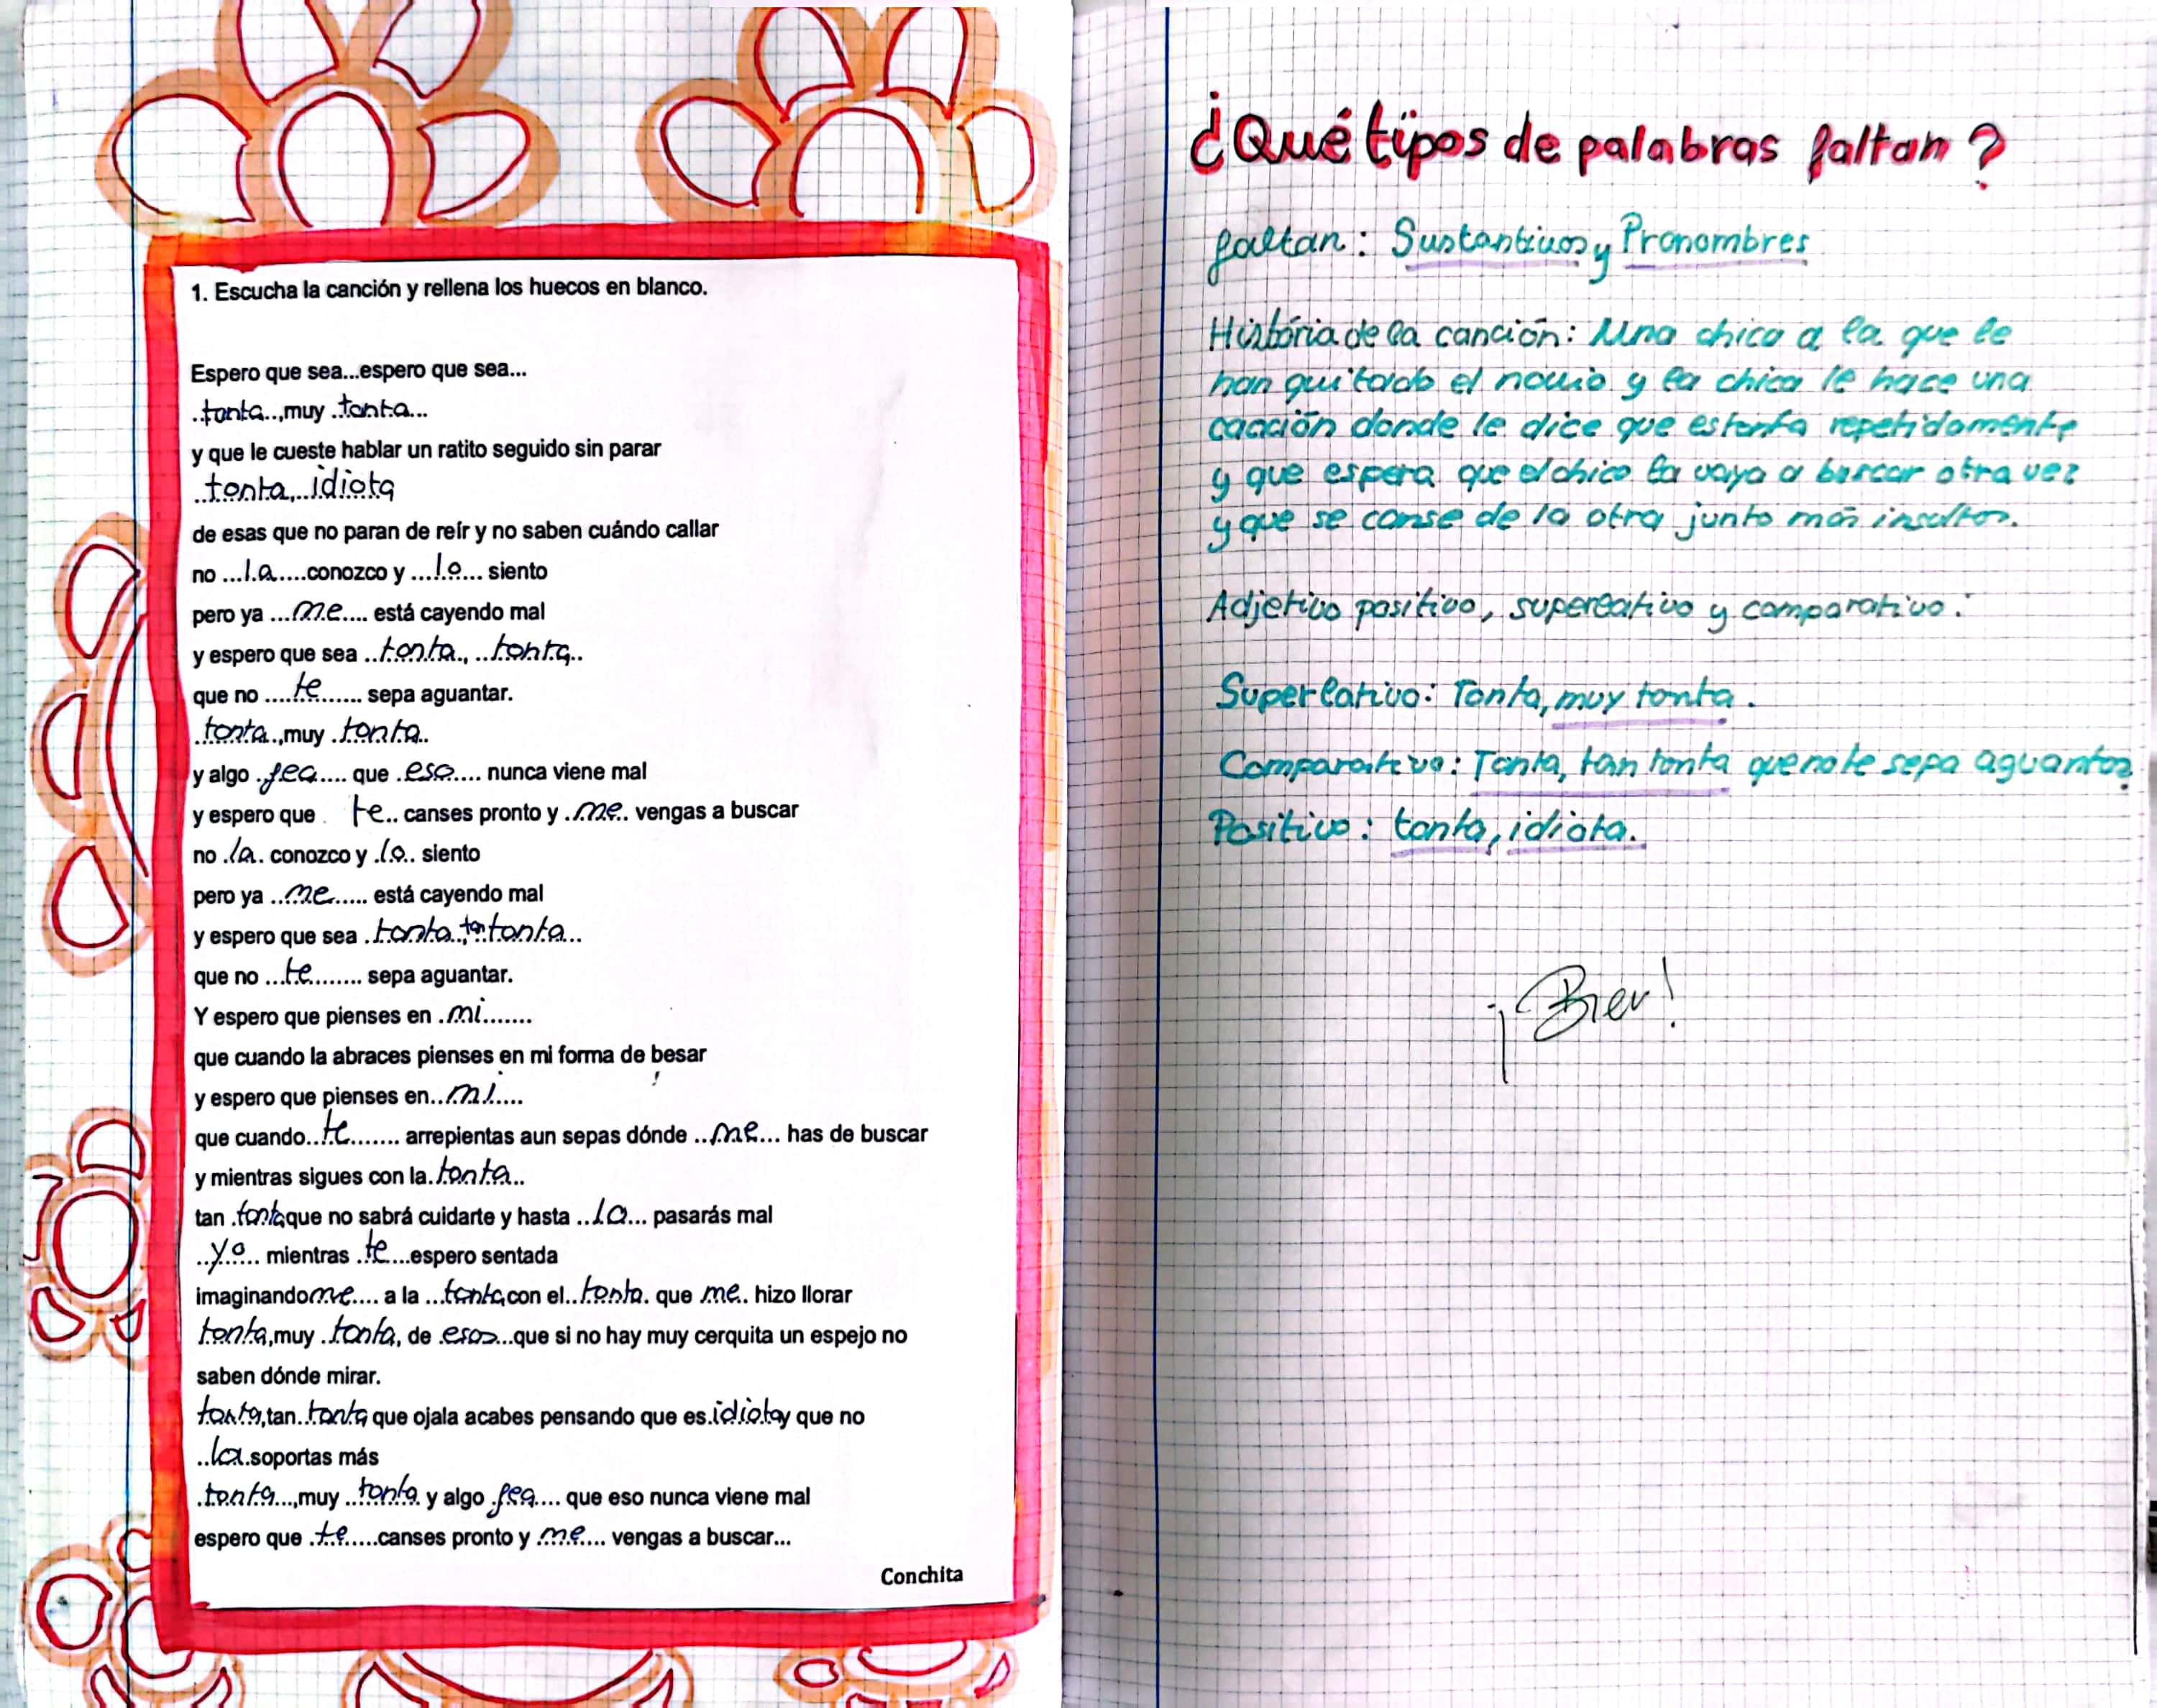 1. Escucha la canción y rellena los huecos en blanco.
Espero que sea...espero que sea...
.tonta..,muy .tonta...
y que le cueste hablar un ratito seguido sin parar
..tonta,...idiota
de esas que no paran de reír y no saben cuándo callar
no ...la....conozco y ...lo... siento
pero ya ...me.... está cayendo mal
y espero que sea ..tonta., ..tonta..
que no ....te....... sepa aguantar.
.tonta.,muy .tonta..
y algo .fea.... que .eso.... nunca viene mal
y espero que . te.. canses pronto y .me. vengas a buscar
no .la. conozco y .lo.. siento
pero ya ..me..... está cayendo mal
y espero que sea .tonta.,tan tonta...
que no ...te........ sepa aguantar.
Y espero que pienses en .mi.......
que cuando la abraces pienses en mi forma de besar
y espero que pienses en..mi....
que cuando..te....... arrepientas aun sepas dónde ..me... has de buscar
y mientras sigues con la.tonta..
tan .tonta que no sabrá cuidarte y hasta ..lo... pasarás mal
..yo.... mientras .te....espero sentada
imaginandome.... a la ...tonta, con el..tonto. que me.. hizo llorar
tonta,muy .tonta, de .esas...que si no hay muy cerquita un espejo no
saben dónde mirar.
tonta,tan..tonta que ojala acabes pensando que es.idiota y que no
..la.soportas más
.tonta...,muy ..tonta y algo .fea.... que eso nunca viene mal
espero que .te.....canses pronto y .me.... vengas a buscar...
Conchita
¿Qué tipos de palabras faltan?
faltan: Sustantivos y Pronombres
História de la canción: Una chica a la que le
han quitado el novio y la chica le hace una
canción donde le dice que es tonta repetidamente
y que espera que el chico la vaya a buscar otra vez
y que se canse de la otra junto más insultos.
Adjetivo positivo, superlativo y comparativo:
Superlativo: Tonta, muy tonta.
Comparativo: Tonta, tan tonta que no te sepa aguantar
Positivo: tonta, idiota.
¡Bien!